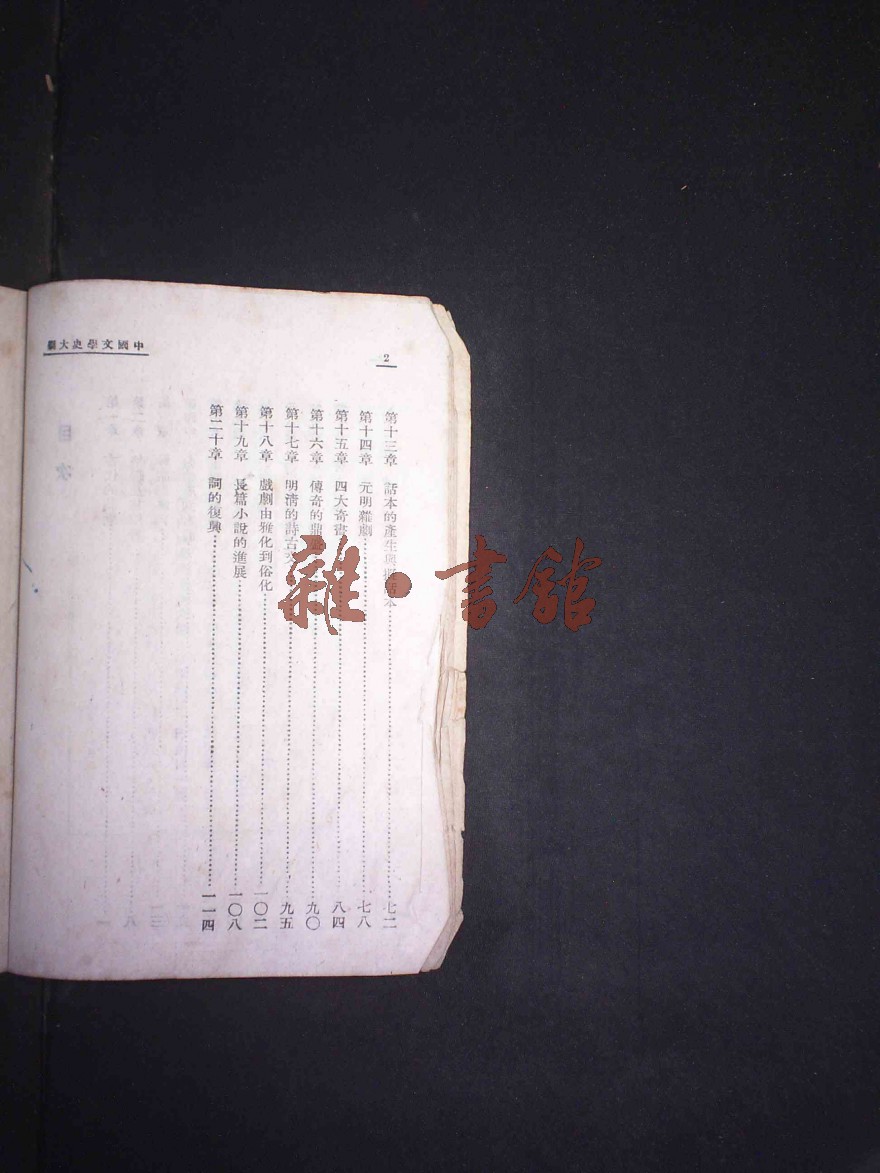 中國文學史大綱
2
第十三章 話本的產生與 本 七二
第十四章 元明雜劇 七八
第十五章 四大奇書 八四
第十六章 傳奇的鼎盛 九〇
第十七章 明清的詩古文 九五
第十八章 戲劇由雅化到俗化 一〇二
第十九章 長篇小說的進展 一〇八
第二十章 詞的復興 一一四
雜·書館